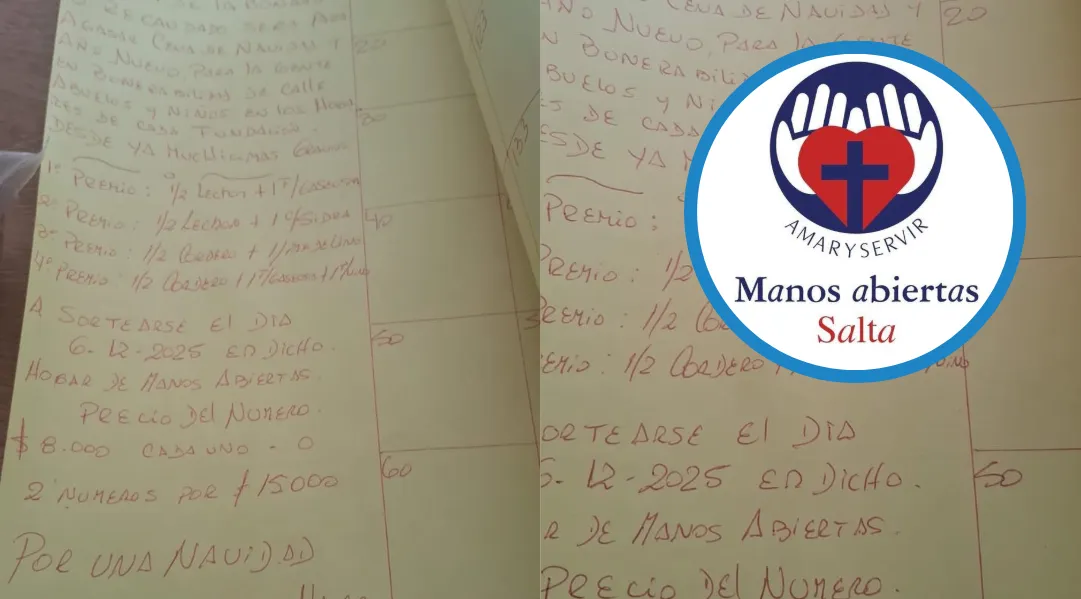 DE LA
RECAUDADO SERA PARA
CENA DE NAVIDAD Y
AÑO NUEVO, PARA LA GENTE
EN BUNERABILIDAD DE CALLE
ABUELOS Y NIÑOS EN LOS HOGA
RES DE CADA FUNDACION.
DESDE YA MUCHISIMAS GRACIAS
1º PREMIO: 1/2 LECHON + 1
2º PREMIO: 1/2 LECHON + 1 SIDRA
3º PREMIO: 1/2 CORDERO + 1
4º PREMIO: 1/2 CORDERO +
A SORTEARSE El DIA
6-12-2025 EN DICHO.
HOGAR DE MANOS ABIERTAS.
PRECIO DEl NUMERO.
$ 8.000 CADA UNO - O
2 NUMEROS POR $ 15000
POR UNA NAVIDAD
20
30
40
50
60
CENA DE NAVIDAD Y
AÑO NUEVO, PARA LA GENTE
N BUNERABILI
BUELOS Y NI
ES DE CADA
ESDE YA M
PREMIO:
PREMIO: 1/2
REMIO: 1/2
EMIO: 1/2 CORDERO
ORTEARSE El DIA
6-12-2025 EN DICHO.
R DE MANOS ABIERTAS.
PRECIO DEl NUMERO.
20
50
AMAR Y SERVIR
Manos abiertas
Salta